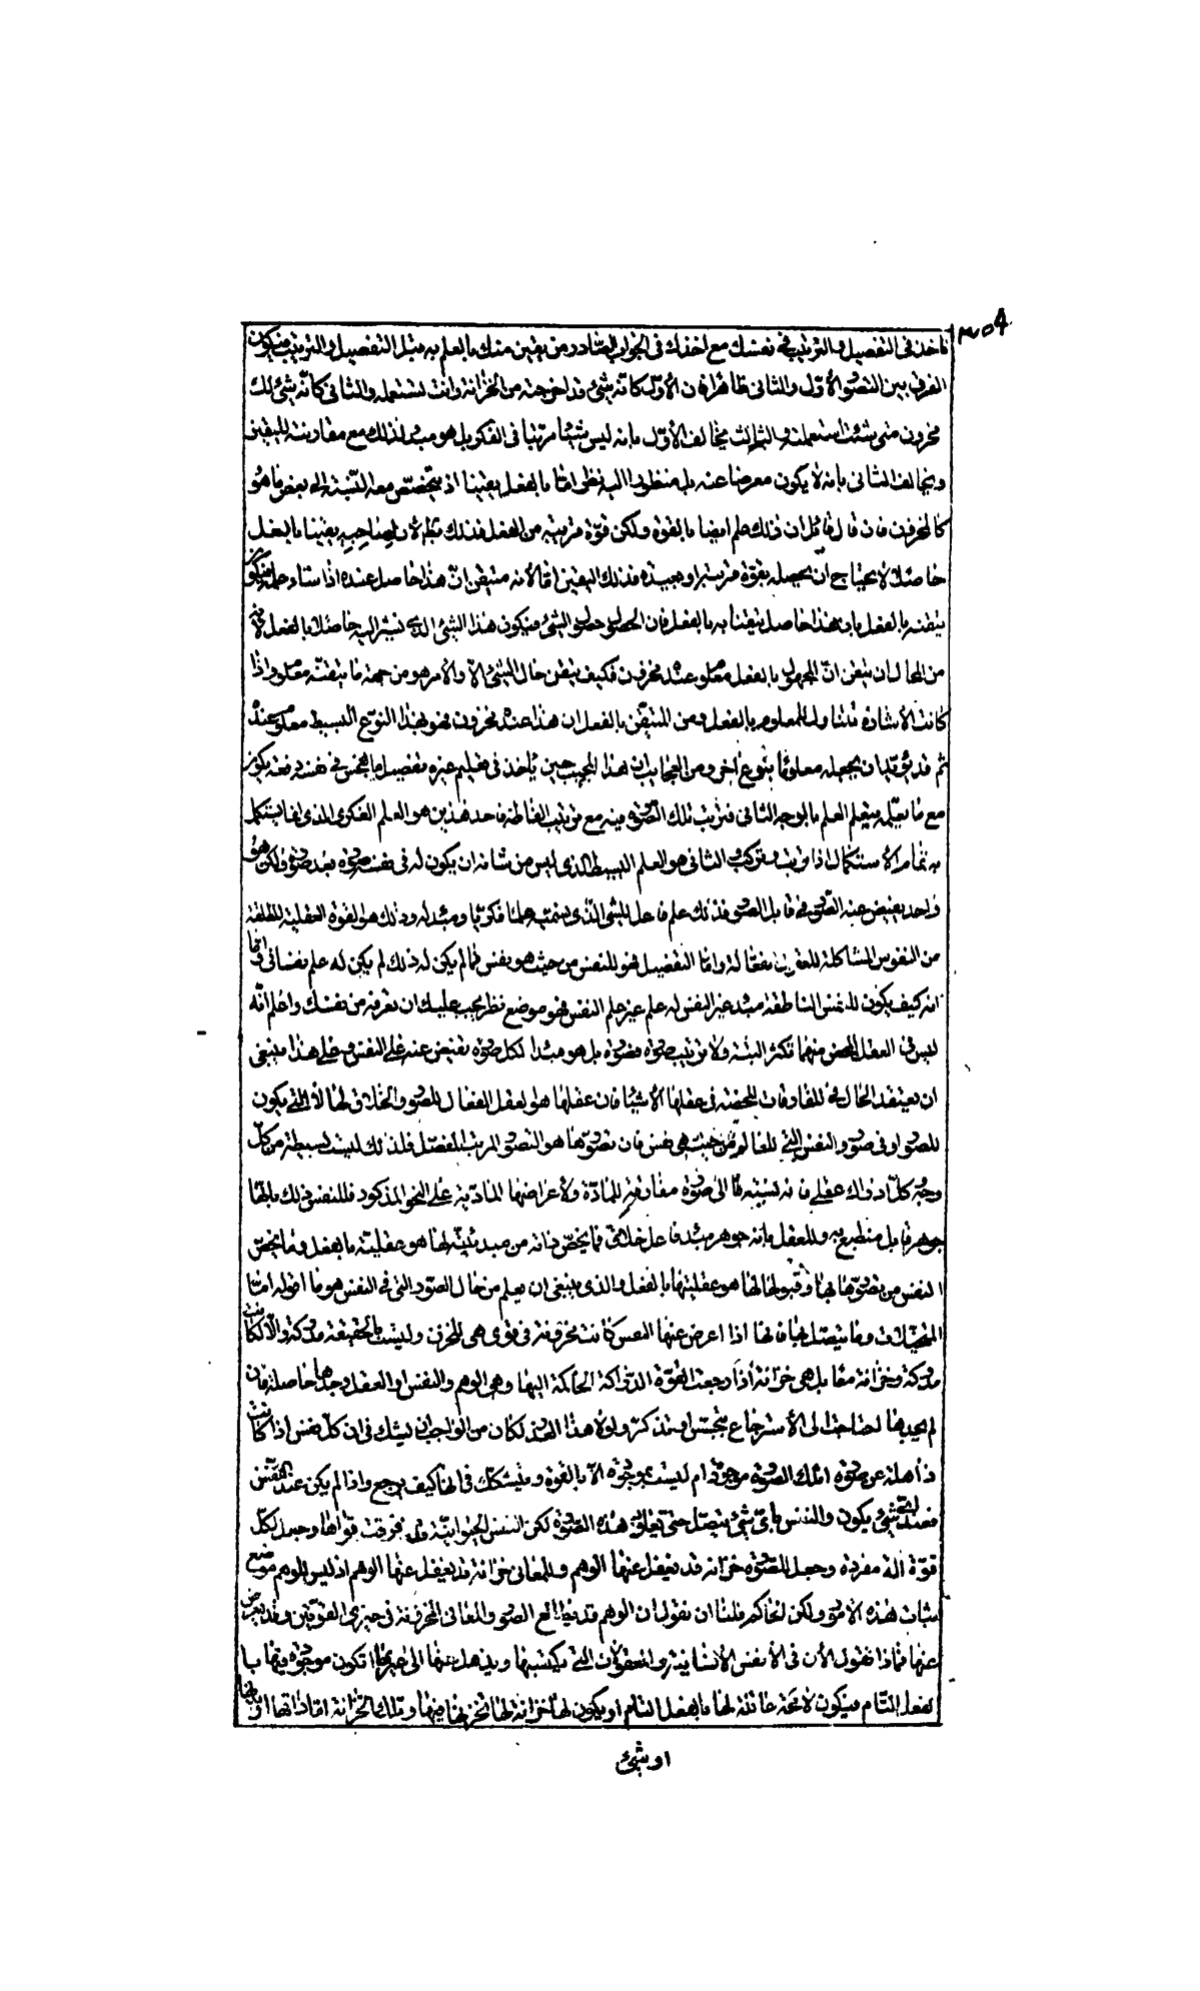 ٣٥٩
فاخذ فى التفصيل والترتيب فى نفسك مع اخذك فى الجواب الصادر من يقين منك بالعلم به قبل التفصيل والترتيب فيكون
الفرق بين التصور الأول والثانى ظاهرا فان الأول كانه شئ قد اخرجته من الخزانة وانت تستعمله والثانى كانه شئ لك
مخزون متى شئت استعملته والثالث يخالف الأول بانه ليس شيئا مرتبا فى الفكر بل هو مبدء لذلك مع مقارنته لليقين
ويخالف الثانى بانه لا يكون معرضا عنه بل منظورا اليه نظرا ما بالفعل يقينا اذ يتخصص معه النسبة الى بعض ما هو
كالمخزون فان قال قائل ان ذلك علم ايضا بالقوة ولكن قوة قريبة من الفعل فذلك باطل لان لصاحبه يقينا بالفعل
حاصلا لا يحتاج ان يحصله بقوة قريبة او بعيدة فذلك اليقين اما لانه متيقن ان هذا حاصل عنده اذا شاء علمه فيكون
تيقنه بالفعل بان هذا حاصل تيقنا به بالفعل فان الحصول حصول الشئ فيكون هذا الشئ الذى نشير اليه حاصلا بالفعل لانه
من المحال ان يتيقن ان المجهول بالفعل معلوم عنده مخزون فكيف يتيقن حال الشئ الا والامر هو من جهة ما يتيقنه معلوم واذا
كانت الاشارة تتناول المعلوم بالفعل ومن المتيقن بالفعل ان هذا عنده مخزون فهو بهذا النوع البسيط معلوم عنده
ثم قد يريد ان يجعله معلوما بنوع اخر ومن العجائب ان هذا المجيب حين ياخذ فى تعليم غيره تفصيل ما هجس فى نفسه دفعة يكون
مع ما يعلمه يتعلم العلم بالوجه الثانى فترتب تلك الصورة فيه مع ترتيب الفاظه فاحد هذين هو العلم الفكرى الذى انما يستكمل
به تمام الاستكمال اذا ترتب وتركب والثانى هو العلم البسيط الذى ليس من شانه ان يكون له فى نفسه صورة بعد صورة ولكن هو
واحد يفيض عنه الصور فى قابل الصور فذلك علم فاعل للشئ الذى نسميه علما فكريا ومبدء له وذلك هو للقوة العقلية المطلقة
من النفوس المشاكلة للعقول الفعالة واما التفصيل فهو للنفس من حيث هو نفس فما لم يكن له ذلك لم يكن له علم نفسانى واما
انه كيف يكون للنفس الناطقة مبدء غير النفس له علم غير علم النفس فهو موضع نظر يجب عليك ان تعرفه من نفسك واعلم انه
ليس فى العقل المحض منهما تكثر البتة ولا ترتيب صورة فصورة بل هو مبدا لكل صورة تفيض عنه على النفس وعلى هذا ينبغى
ان يعتقد الحال فى المفارقات المحضة فى عقلها الاشياء فان عقلها هو العقل الفعال للصور والخلاق لها لا الذى يكون
للصور او فى صور والنفس التى للعالم من حيث هى نفس فان تصورها هو التصور المرتب المفصل فلذلك ليست بسيطة من كل
وجه وكل ادراك عقلى فانه نسبة ما الى صورة مفارقة للمادة ولاعراضها المادية على النحو المذكور فللنفس ذلك بانها
جوهر قابل منطبع به وللعقل بانه جوهر مبدء فاعل خلاق فما يخص ذاته من مبدئيته لها هو عقليته بالفعل وما يخص
النفس من تصورها بها وقبولها لها هو عقليتها بالفعل والذى ينبغى ان يعلم من حال الصور التى فى النفس هو ما اقوله اما
المتخيلات وما يتصل بها فانها اذا اعرض عنها النفس كانت مخزونة فى قوى هى للخزن وليست بالحقيقة مدركة والا لكانت
مدركة وخزانة معا بل هى خزانة اذا رجعت القوة الدراكة الحاكمة اليها وهى الوهم والنفس او العقل وجدها حاصلة فان
لم يجدها احتاجت الى الاسترجاع بتجسس او تذكر ولولا هذا العذر لكان من الواجب ان يشك فى ان كل نفس اذا كانت
ذاهلة عن صورة اتلك الصورة موجودة ام ليست بموجودة الا بالقوة ويتشكك فى انها كيف ترجع واذا لم يكن عند النفس
فعند اى شئ يكون والنفس باى شئ يتصل حتى تعاود هذه الصورة لكن النفس الحيوانية قد فرقت قواها وجعل لكل
قوة الة مفردة وجعل للصورة خزانة قد يغفل عنها الوهم وللمعانى خزانة قد يغفل عنها الوهم اذ ليس الوهم موضع
ثبات هذه الامور ولكن الحاكم فلنا ان نقول ان الوهم قد يطالع الصور والمعانى المخزونة فى حيزى القوتين وقد يعرض
عنها فماذا نقول الان فى الانفس الانسانية والمعقولات التى تكتسبها ويذهل عنها الى غيرها اتكون موجودة فيها با
لفعل التام فيكون لا محة عاقلة لها بالفعل التام او يكون لها خزانة لها تخزنها فيها وتلك الخزانة اما ذاتها او بدنها
او شئ